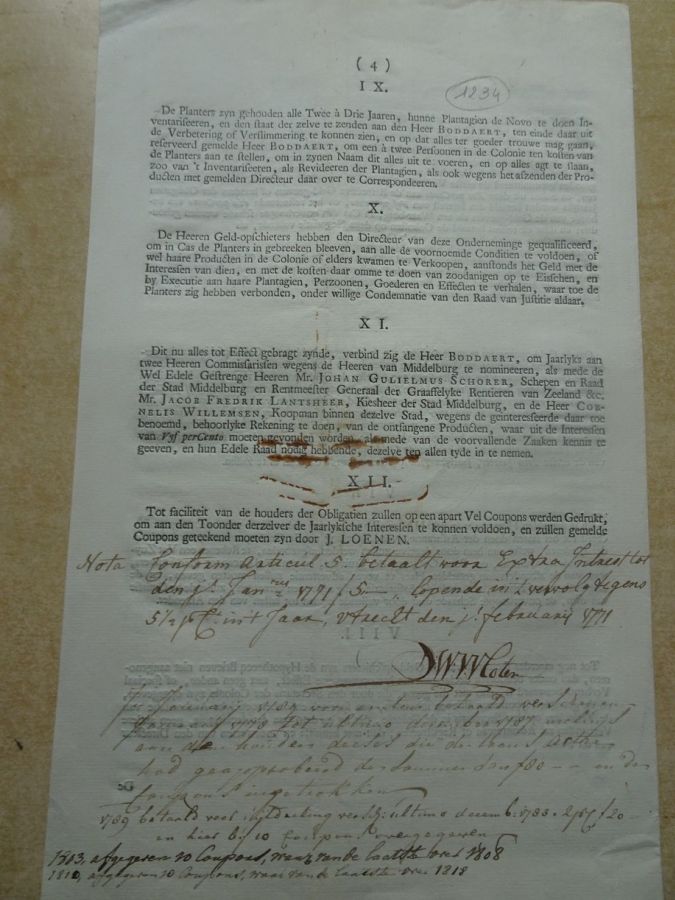 ( 4 )
I X.
1234
De Planters zyn gehouden alle Twee à Drie Jaaren, hunne Plantagien de Novo te doen In-
ventariseeren, en den staat der zelve te zenden aan den Heer BODDAERT, ten einde daar uit
de Verbetering of Verslimmering te konnen zien, en op dat alles ter goeder trouwe mag gaan,
reserveerd gemelde Heer BODDAERT, om een à twee Persoonen in de Colonie ten kosten van
de Planters aan te stellen, om in zynen Naam dit alles uit te voeren, en op alles agt te slaan,
zoo van 't Inventariseeren, als Revideeren der Plantagien, als ook wegens het afzenden der Pro-
ducten met gemelden Directeur daar over te Correspondeeren.
X.
De Heeren Geld-opschieters hebben den Directeur van deze Onderneminge gequalificeerd,
om in Cas de Planters in gebreeken bleeven, aan alle de voornoemde Conditien te voldoen, of
wel haare Producten in de Colonie of elders kwamen te Verkoopen, aanstonds het Geld met de
Interessen van dien, en met de kosten daar omme te doen van zoodanigen op te Eisschen, en
by Executie aan haare Plantagien, Perzoonen, Goederen en Effecten te verhalen, waar toe de
Planters zig hebben verbonden, onder willige Condemnatie van den Raad van Justitie aldaar.
X I.
Dit nu alles tot Effect gebragt zynde, verbind zig de Heer BODDAERT, om Jaarlyks aan
twee Heeren Commissarissen wegens de Heeren van Middelburg te nomineeren, als mede de
Wel Edele Gestrenge Heeren Mr. JOHAN GULIELMUS SCHORER, Schepen en Raad
der Stad Middelburg en Rentmeester Generaal der Graaffelyke Rentieren van Zeeland &c.
Mr. JACOB FREDRIK LANTSHEER, Kiesheer der Stad Middelburg, en de Heer COR-
NELIS WILLEMSEN, Koopman binnen dezelve Stad, wegens de geinteresseerde daar toe
benoemd, behoorlyke Rekening te doen, van de ontfangene Producten, waar uit de Interessen
van Vyf perCento moeten gevonden worden, als mede van de voorvallende Zaaken kennis te
geeven, en hun Edele Raad nodig hebbende, dezelve ten allen tyde in te nemen.
X I I.
Tot faciliteit van de houders der Obligatien zullen op een apart Vel Coupons werden Gedrukt,
om aan den Toonder derzelver de Jaarlyksche Interessen te konnen voldoen, en zullen gemelde
Coupons geteekend moeten zyn door J. LOENEN.
Nota Conform Articul 5. betaalt voor Extra Intrest tot
den 1 Janry 1771 f 5 — lopende in 't vervolg tegens
5 1/2 p C. int Jaar, Utrecht den 1 february 1771
1789 betaald voor uytdeeling ultimo decemb: 1788 f 20
en hier by 10 Coupons overgegeven
1803, afgegeven 10 Coupons, waar van de laatste over 1808
1810, afgegeven 10 Coupons, waar van de laatste over 1818